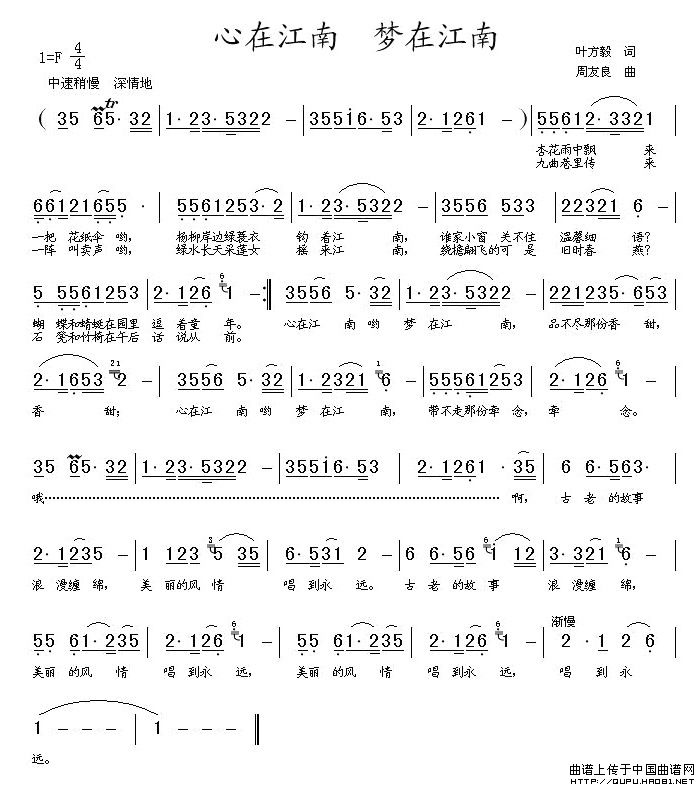 心在江南　梦在江南
1=F 4/4
叶方毅　词
中速稍慢　深情地
周友良　曲
( 35 65· 32 | 1· 23· 5322 | 2 – | 3551 6· 53 | 2· 1261 – ) | 5561 2· 3321 |
杏花雨中飘　来
九曲巷里传　来
66121655 · | 5561253· 2 | 1· 23· 5322 – | 3556 533 | 2212355 – |
一把　花纸伞　哟，　杨柳岸边绿蓑衣　钩　着江　南，　谁家小窗　关不住　温馨细　语？
一阵　叫卖声　哟，　绿水长天采莲女　摇　来江　南，　绕檐翩飞的可　是　旧时春　燕？
5 5561253 | 2· 126 6 1 – :| 3556 5· 32 | 1· 23 2122 – | 2212 35· 653 |
蝴　蝶和蜻蜓在园里　逗　着童　年。　心在江　南哟　梦　在江　南，　品不尽那份香　甜，
石　凳和竹椅在午后　话　说从　前。
2· 1653 21 2 – | 3556 5· 32 | 1· 2321 1 6 – | 55561253 – | 2· 126 6 1 – |
香　甜；　心在江　南哟　梦　在江　南，　带不走那份牵　念，　牵　念。
35 65· 32 | 1· 23· 5322 – | 3551 6· 53 | 2· 1261 · 35 | 6 6·563· |
哦………………　啊，　古　老　的故事
2· 1235 – | 1 123 3 5 35 | 6· 5312 – | 6· 563· 6 1 12 | 3· 321 1 6 – |
浪　漫缠　绵，　美　丽的风　情　唱　到永　远。　古　老　的故　事　浪　漫缠　绵，
渐慢
55 61· 235 | 2· 126 6 1 – | 55 61· 235 | 2· 126 6 1 – | 2 · 1 2 6 |
美丽　的风　情　唱　到永　远，　美丽　的风　情　唱　到永　远，　唱　到　永
1 – – – | 1 – – – ‖
远。
曲谱上传于中国曲谱网
http://QUPU.HAO81.NET